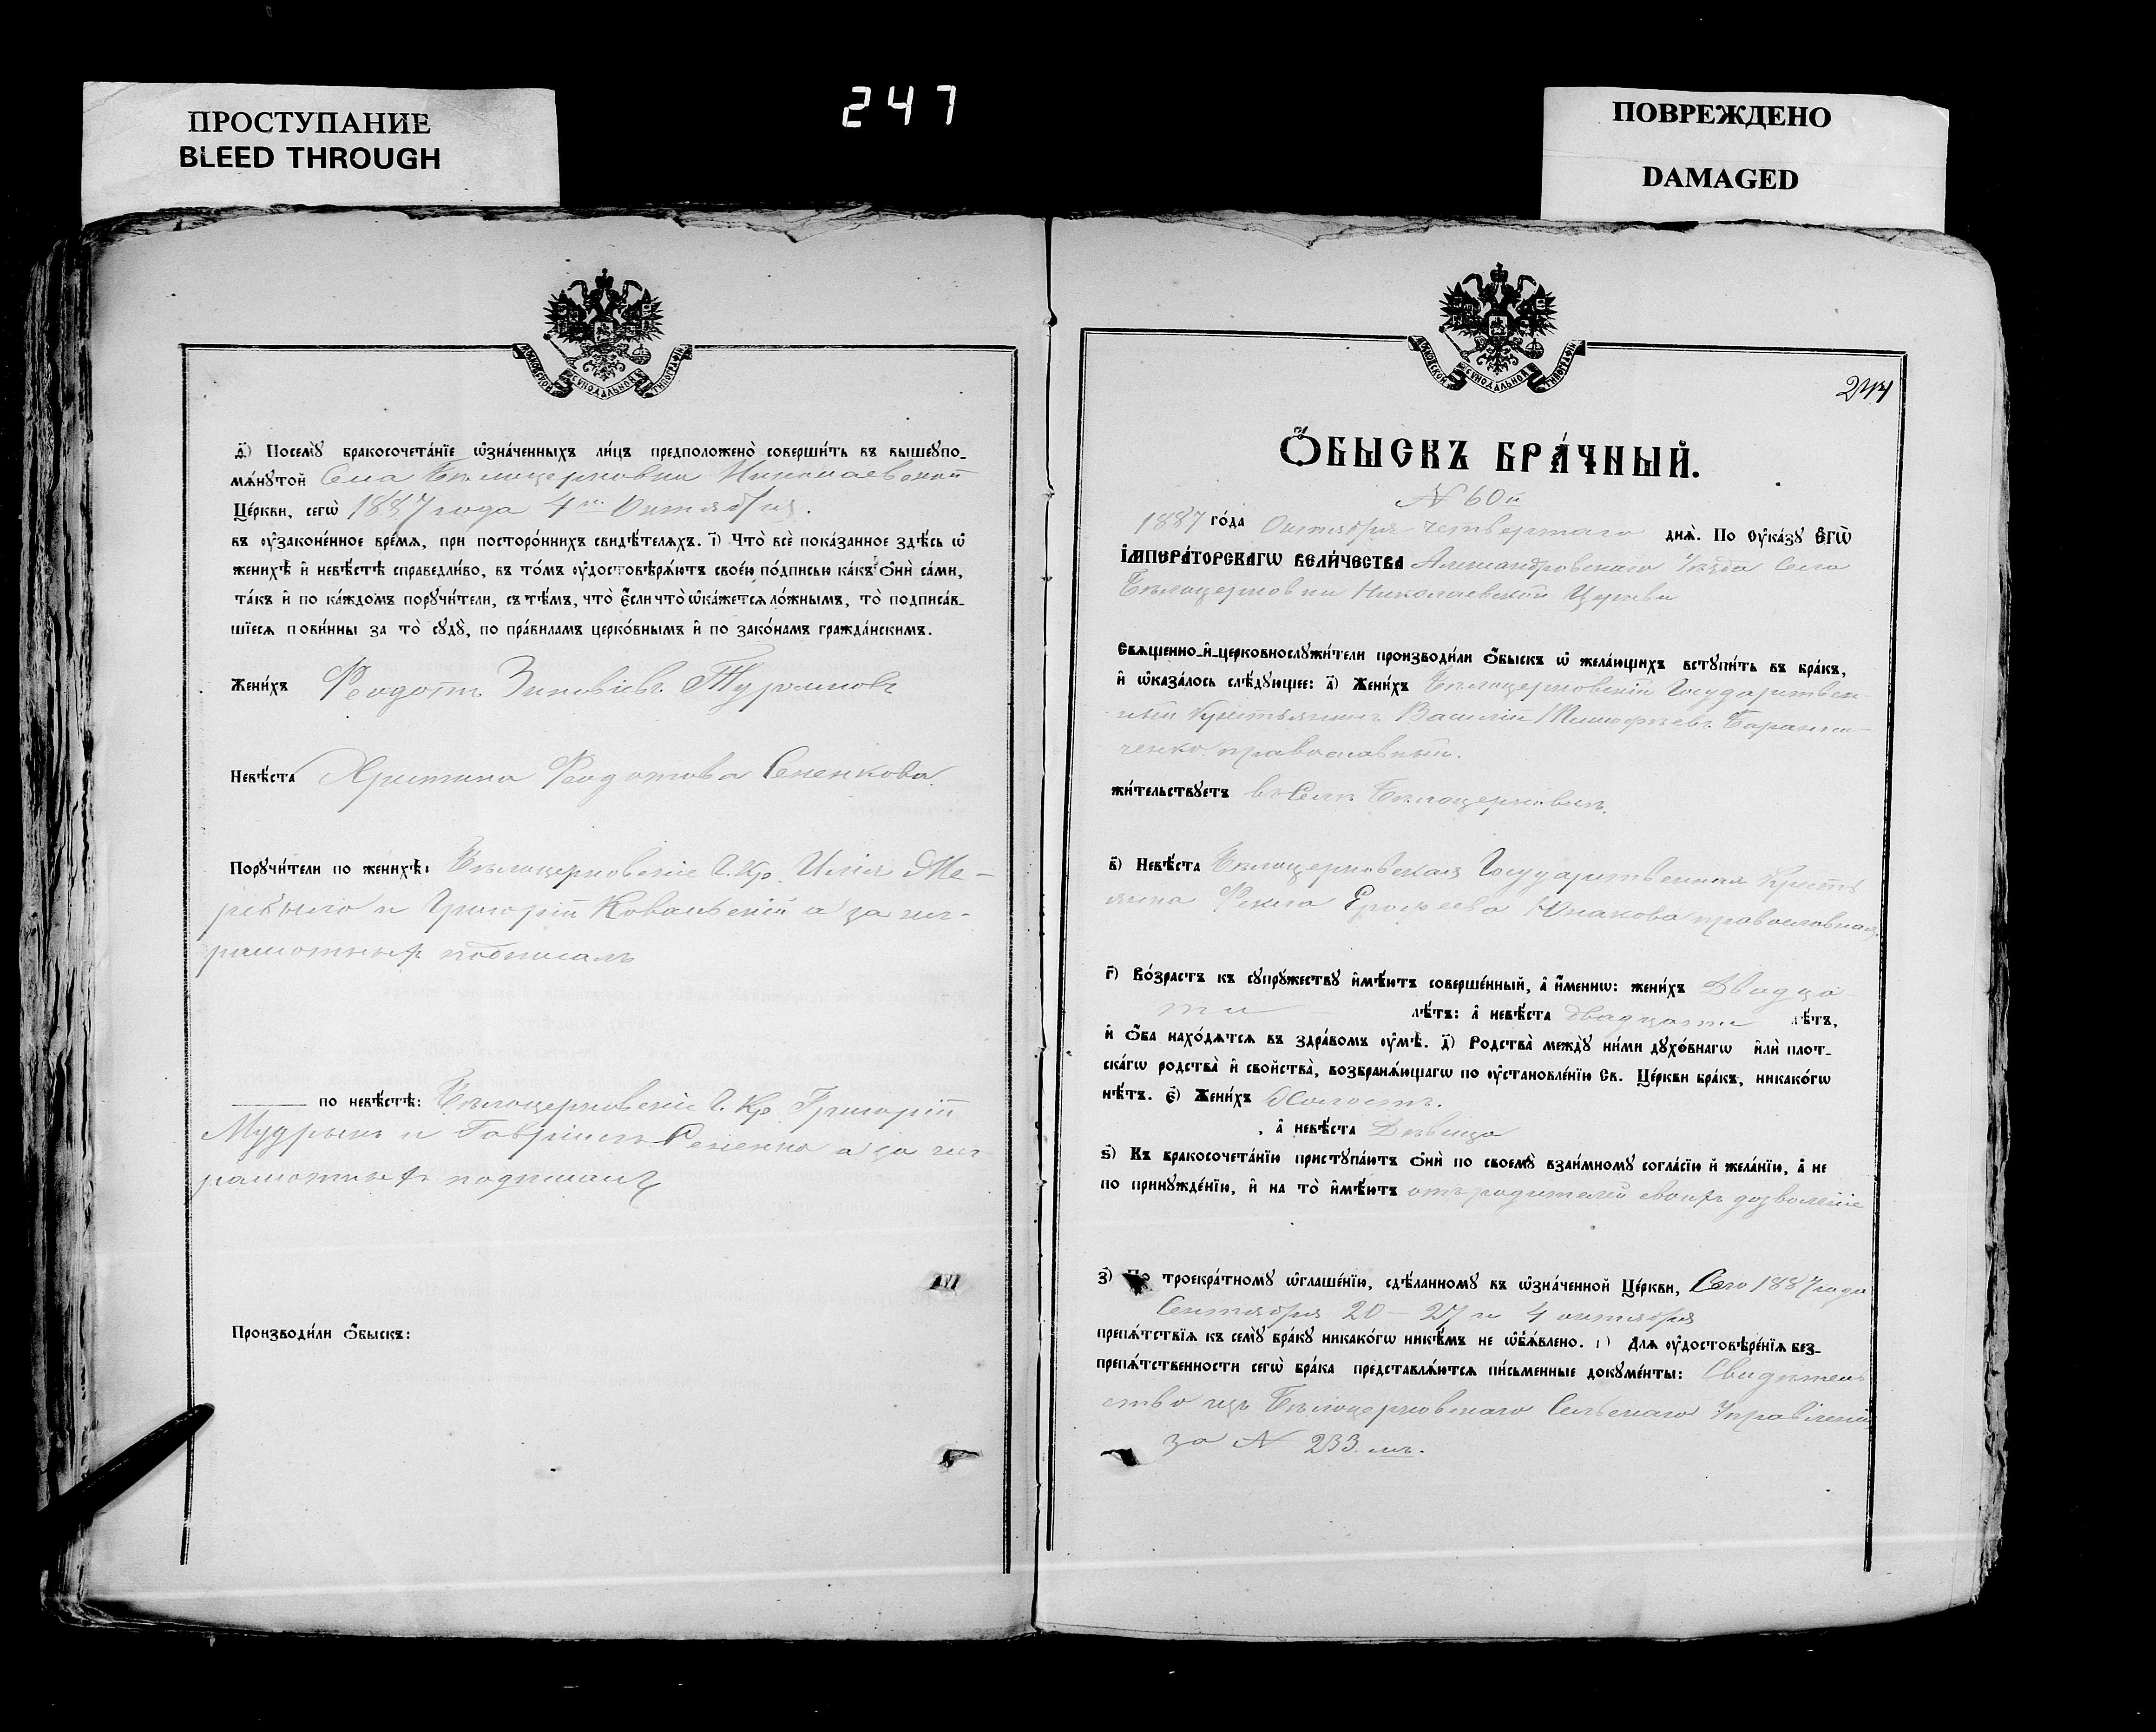 ПРОСТУПАНИЕ
BLEED THROUGH
247
ПОВРЕЖДЕНО
DAMAGED
МОСКОВСКОЙ СУНОДАЛЬНОЙ ТИПОГРАФІИ
д҃і) Посемꙋ̀ бракосочета́нїе ѡ҆зна́ченныхъ ли́цъ предположено̀ соверши́ть въ вышеꙋпо-
мѧ́нꙋтой Села Бѣлоцерковки Николаевской
Це́ркви, сегѡ̀ 1887 года 4го Октября.
въ ᲂу҆законе́нное вре́мѧ, при посторо́ннихъ свидѣ́телѧхъ. і҃) Что̀ всѐ пока́занное здѣ́сь ѡ҆
женихѣ̀ и҆ невѣ́стѣ справедли́во, въ то́мъ ᲂу҆достовѣрѧ́ютъ свое́ю по́дписью ка́къ ѻ҆нѝ са́ми,
та́къ и҆ по ка́ждомъ порꙋчи́тели, съ тѣ́мъ, что̀ є҆́сли что̀ ѡ҆ка́жетсѧ ло́жнымъ, то̀ подписа́в-
шїесѧ пови́нны за то̀ сꙋдꙋ̀, по пра́виламъ церко́внымъ и҆ по зако́намъ гражда́нскимъ.
Жени́хъ Феодотъ Зиновіевъ
Невѣ́ста Христина Феодотова Семенкова
Порꙋчи́тели по женихѣ̀: Бѣлоцерковскіе Г. Кр. Илія
и Григорій Ковальскій а за негр-
амотныхъ подписалъ
по невѣ́стѣ: Бѣлоцерковскіе Г. Кр. Григорій
и Гавріилъ а за негр-
амотныхъ
Производи́ли ѻ҆́быскъ:
МОСКОВСКОЙ СУНОДАЛЬНОЙ ТИПОГРАФІИ
244
Ѻ҆́БЫСКЪ БРА́ЧНЫЙ.
№ 60й
1887 го́да Октября четвертаго днѧ̀. По ᲂу҆ка́зꙋ Є҆ГѠ̀
І҆МПЕРА́ТОРСКАГѠ ВЕЛИ́ЧЕСТВА Александровскаго Уѣзда Села
Бѣлоцерковки Николаевской Церкви
Сващенно-и҆-церковнослꙋжи́тели производи́ли ѻ҆́быскъ ѡ҆ жела́ющихъ встꙋпи́ть въ бра́къ,
и҆ ѡ҆каза́лось слѣ́дꙋющее: а҃) Жени́хъ Бѣлоцерковскій Государствен-
ный Крестьянинъ Василій Тимофѣевъ Баранни-
ченко православный.
жи́тельствꙋетъ въ Селѣ Бѣлоцерковкѣ.
в҃) Невѣ́ста Бѣлоцерковская Государственная Кресть
янка Фекла Ерофеева православная
г҃) Во́зрастъ къ сꙋпрꙋ́жествꙋ и҆мѣ́ютъ соверше́нный, а҆ и҆́меннѡ: жени́хъ Двадца
ти лѣ́тъ: а҆ невѣ́ста двадцати лѣ́тъ,
и҆ ѻ҆́ба нахо́дѧтсѧ въ здра́вомъ ᲂу҆мѣ̀. д҃) Родства̀ междꙋ̀ ни́ми дꙋхо́внагѡ и҆лѝ плот-
ска́гѡ родства̀ и҆ свойства̀, возбранѧ́ющагѡ по ᲂу҆становле́нїю Св. Це́ркви бра́къ, никако́гѡ
нѣ́тъ. є҃) Жени́хъ Холостъ.
, а҆ невѣ́ста Дѣвица
ѕ҃) Къ бракосочета́нїю пристꙋпа́ютъ ѻ҆нѝ по своемꙋ̀ взаи́мномꙋ согла́сїю и҆ жела́нїю, а҆ не
по принꙋжде́нїю, и҆ на то̀ и҆мѣ́ютъ отъ родителей своихъ дозволеніе
з҃) По троекра́тномꙋ ѡ҆глаше́нїю, сдѣ́ланномꙋ въ ѡ҆зна́ченной Це́ркви, Сего 1887 года
Сентября 20 – 27 и 4 октября
препѧ́тствїѧ къ семꙋ̀ бра́кꙋ никако́гѡ никѣ́мъ не ѡ҆б̾ѧ́влено. и҃) Длѧ ᲂу҆достовѣре́нїѧ без-
препѧ́тственности сегѡ̀ бра́ка представлѧ́ютсѧ пи́сьменные докꙋме́нты: Свидѣтель
ство изъ Бѣлоцерковскаго Сельскаго Управленія
за № 233 мъ.